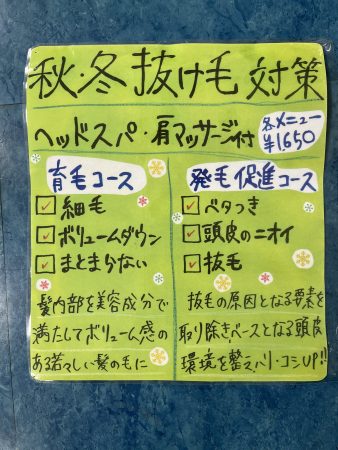 秋・冬 抜け毛 対策
ヘッドスパ・肩マッサージ付
各メニュー
¥1,650
育毛コース
細毛
ボリュームダウン
まとまらない
髪内部を美容成分で
満たしてボリューム感の
ある若々しい髪の毛に
発毛促進コース
ベタつき
頭皮のニオイ
抜毛
抜毛の原因となる要素を
取り除きベースとなる頭皮
環境を整えハリ・コシUP!!